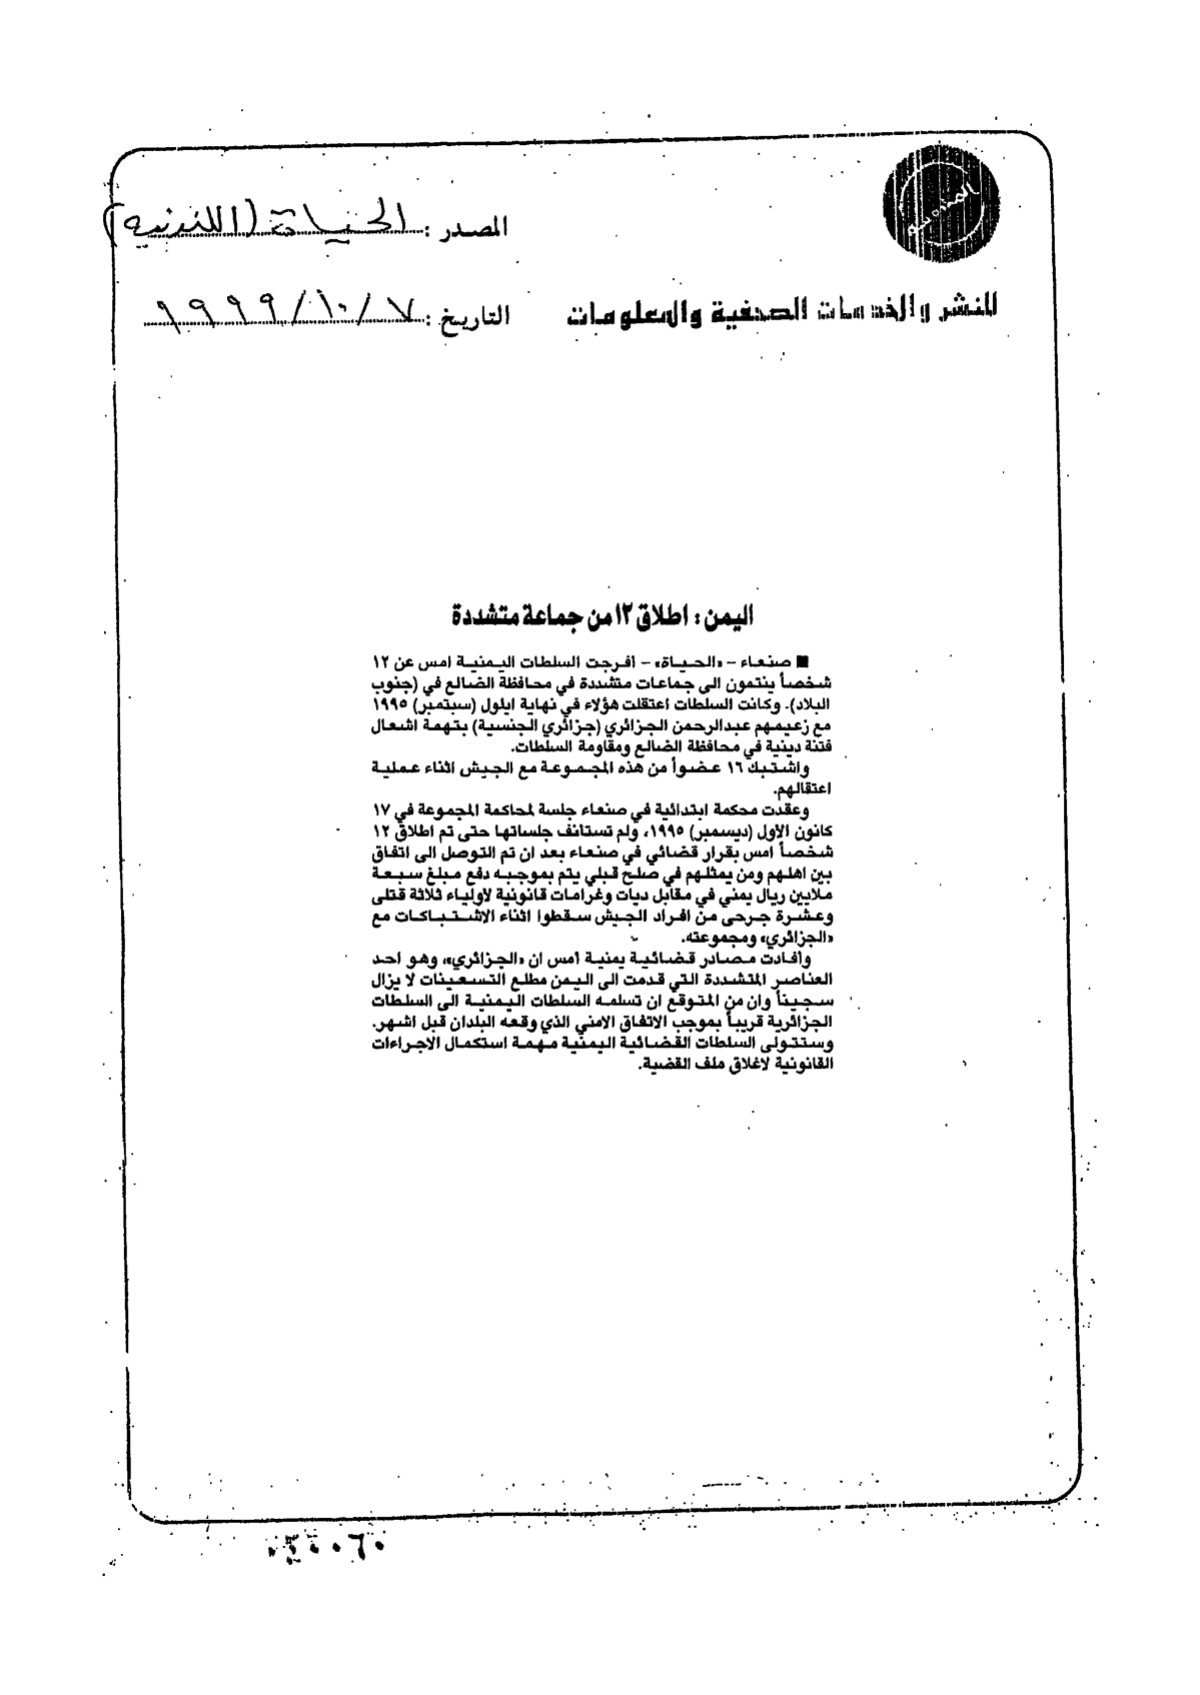 المصدر : الحياة (اللندنيه)
للنشر والخدمات الصحفية والمعلومات
التاريخ : ٧/١٠/١٩٩٩
اليمن : اطلاق ١٢ من جماعة متشددة
■ صنعاء - «الحياة» - افرجت السلطات اليمنية امس عن ١٢
شخصاً ينتمون الى جماعات متشددة في محافظة الضالع في (جنوب
البلاد). وكانت السلطات اعتقلت هؤلاء في نهاية ايلول (سبتمبر) ١٩٩٥
مع زعيمهم عبدالرحمن الجزائري (جزائري الجنسية) بتهمة اشعال
فتنة دينية في محافظة الضالع ومقاومة السلطات.
واشتبك ١٦ عضواً من هذه المجموعة مع الجيش اثناء عملية
اعتقالهم.
وعقدت محكمة ابتدائية في صنعاء جلسة لمحاكمة المجموعة في ١٧
كانون الاول (ديسمبر) ١٩٩٥، ولم تستانف جلساتها حتى تم اطلاق ١٢
شخصاً امس بقرار قضائي في صنعاء بعد ان تم التوصل الى اتفاق
بين اهلهم ومن يمثلهم في صلح قبلي يتم بموجبه دفع مبلغ سبعة
ملايين ريال يمني في مقابل ديات وغرامات قانونية لاولياء ثلاثة قتلى
وعشرة جرحى من افراد الجيش سقطوا اثناء الاشتباكات مع
«الجزائري» ومجموعته.
وأفادت مصادر قضائية يمنية أمس ان «الجزائري»، وهو احد
العناصر المتشددة التي قدمت الى اليمن مطلع التسعينات لا يزال
سجيناً وان من المتوقع ان تسلمه السلطات اليمنية الى السلطات
الجزائرية قريباً بموجب الاتفاق الامني الذي وقعه البلدان قبل اشهر.
وستتولى السلطات القضائية اليمنية مهمة استكمال الاجراءات
القانونية لاغلاق ملف القضية.